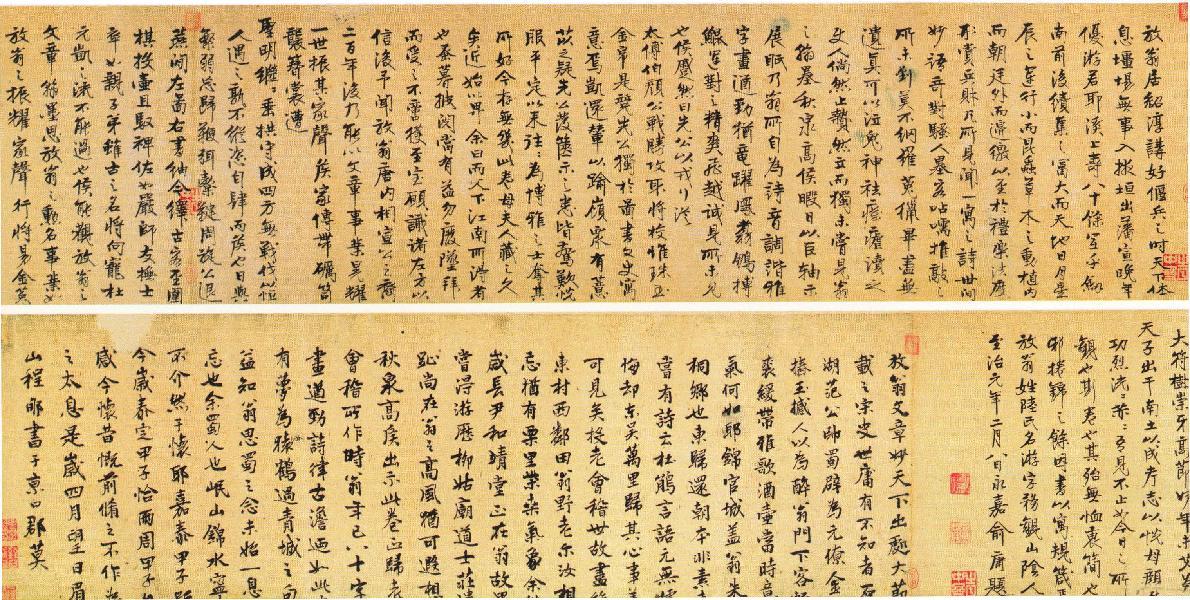 放翁居紹淳講好偃兵之時天下休
息壃場無事入掖垣出藩宣晚年
優游君耶溪上壽八十餘
前後續集之富大而天地日月星
辰之運行小而昆蟲草木之動植內
而朝廷外而邊徼以至於禮樂法度
形賞兵財凡所見聞一寓之詩世間
妙語奇對騷人墨客呫囁推敲之
所未到莫不網羅蒐獵畢盡無
遺真可以泣鬼神祛瘧癘讀之
使人悄然立而獨未嘗見翁
之翰墨秋泉高侯暇日以巨軸示
展眎乃翁所自為詩音調諧雅
字畫遒勁猶龍躍鳳翥鶻摶
鯨對之精爽飛越誠見所未見
也侯愀然曰先公以戎行從
太傅伯顏公戰勝攻取將校惟珠玉
金帛是先公獨於圖書文史寓
意焉凱還輦以踰嶺眾有薏
苡之疑先公發篋示之悉皆驚歎悅
服平定以來往往為博雅之士奪其
所好今存無幾此卷母夫人藏之久
矣近始畀余曰而人下江南所得者
也秦暮披閱當有益勿廢墜拜
而受之不啻獲至寶願識諸左方以
信後予聞放翁唐內相宣公之裔
二百年後乃能以文章事業昌耀
一世振其家聲侯家傳世礪笥
襲簪裳遭
聖明繼乘拱守成四方無戰伐恒
人遇之孰不縱恣自肆而侯也日與
燕閒左圖右書紬今繹古
棋投壺且馭裨佐如嚴師友撫士
卒如親子弟雖古之名將向寵杜
元凱之流不能過也侯能觀放翁之
文章翰墨思放翁之勳名事業如
放翁之振耀家聲行將易金莫
大符樹崇牙高節
天子出干南土以成考志以悅母顏
功烈洸洸赫赫吾見不止如今日之所
觀也斯卷也其殆無恤衷簡也
耶捲歸之餘因書以寓規箴
放翁姓陸氏名游字務觀山陰人
至治元年二月八日永嘉俞庸題
放翁文章妙天下出處大節
載之宋史世庸有不知者石
湖范公帥蜀辟為元僚金
搥玉撼人以為醉翁門下客
裘緩帶雅歌酒壺當時意
氣何如耶錦官城蓋翁朱
桐鄉也東歸還朝本非素
嘗有詩云杜鵑言語元無
悔却東吳萬里歸其心事
可見矣投老會稽世故盡
東村西鄰田翁野老尔汝相
忘猶有栗里柴桑氣象余
歲長尹和靖堂正在翁故
嘗得游歷柳姑廟道士莊
趾尚在翁之高風猶可遐想
秋泉高侯出示此卷正歸老
會稽所作時翁年已八十字
畫遒勁詩律古澹迺如此
有夢為猿鶴過青城之句
益知翁思蜀之念未始一息
忘也余蜀人也岷山錦水寧
不介然于懷耶嘉泰甲子
今歲泰定甲子恰兩周甲子
感今懷昔慨前脩之不作
之太息是歲四月望日眉
山程郇書于京口郡